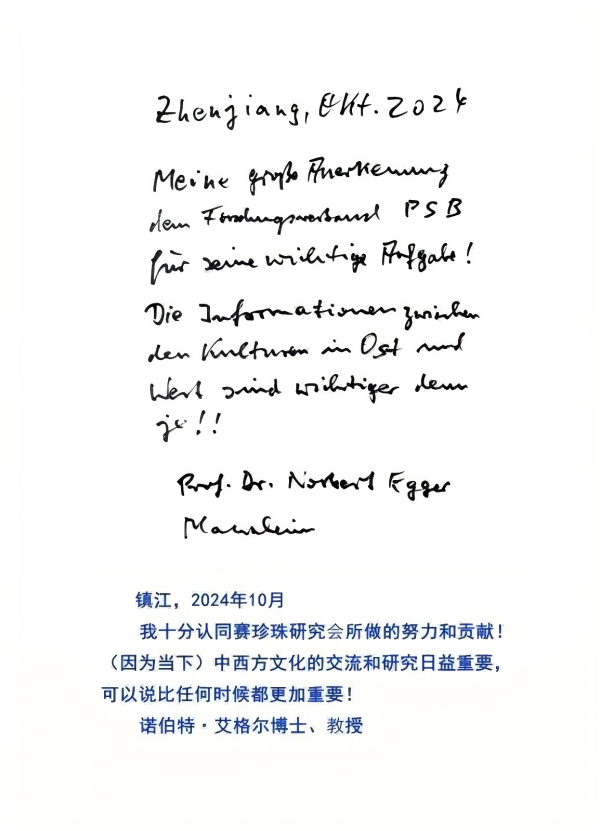 Zhenjiang, Okt. 2024
Meine große Anerkennung
dem Forschungsverband PSB
für seine wichtige Aufgabe!
Die Informationen zwischen
den Kulturen in Ost und
West sind wichtiger denn
je!!
Prof. Dr. Norbert Egger
Mannheim
镇江，2024年10月
我十分认同赛珍珠研究会所做的努力和贡献！
（因为当下）中西方文化的交流和研究日益重要，
可以说比任何时候都更加重要！
诺伯特·艾格尔博士、教授